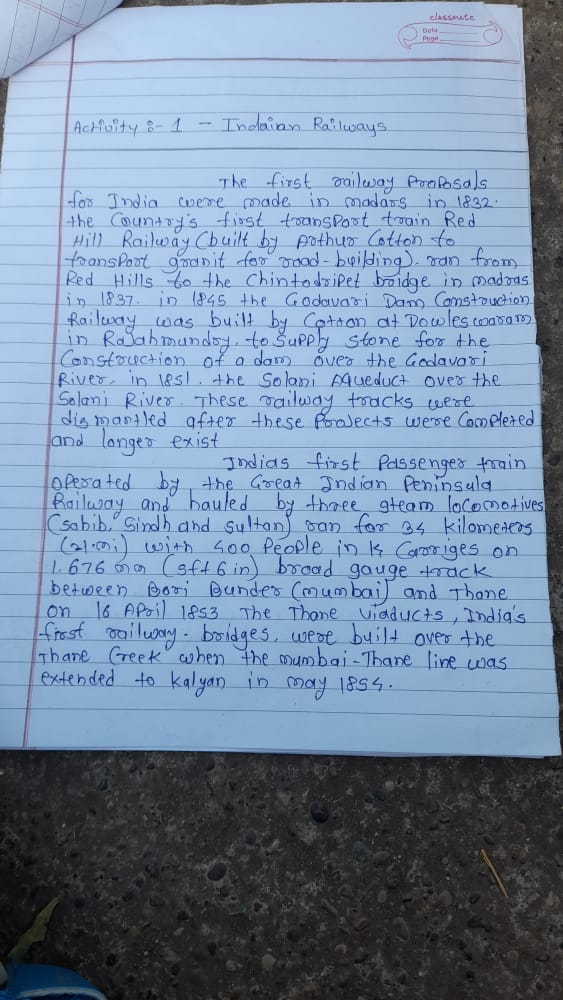 classmate
Date
Page
Activity :- 1 - Indaian Railways
The first railway Proposals
for India were made in madars in 1832.
the Country's first transport train Red
Hill Railway (built by Arthur Cotton to
transport granit for road-building). ran from
Red Hills to the Chintodripet bridge in madras
in 1837. in 1845 the Godavari Dam Construction
Railway was built by Cotton at Dowleswaram
in Rajahmundry. to Supply stone for the
Construction of a dam over the Godavari
River, in 1851. the Solani Aqueduct over the
Solani River. These railway tracks were
dismantled after these Projects were Completed
and longer exist
Indias first Passenger train
operated by the Great Indian Peninsula
Railway and hauled by three steam locomotives
(sahib, Sindh and sultan) ran for 34 kilometers
(21.mi) with 400 People in 14 Carriges on
1.676 mm (5ft 6 in) broad gauge track
between Bori Bunder (mumbai) and Thane
on 16 April 1853 The Thane Viaducts, India's
first railway. bridges, were built over the
Thane Creek when the mumbai-Thane line was
extended to Kalyan in may 1854.